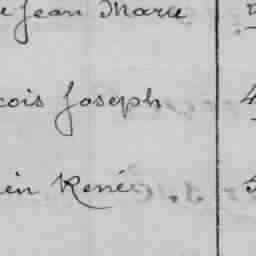 e Jean Marie
cois Joseph 4
ien René 5